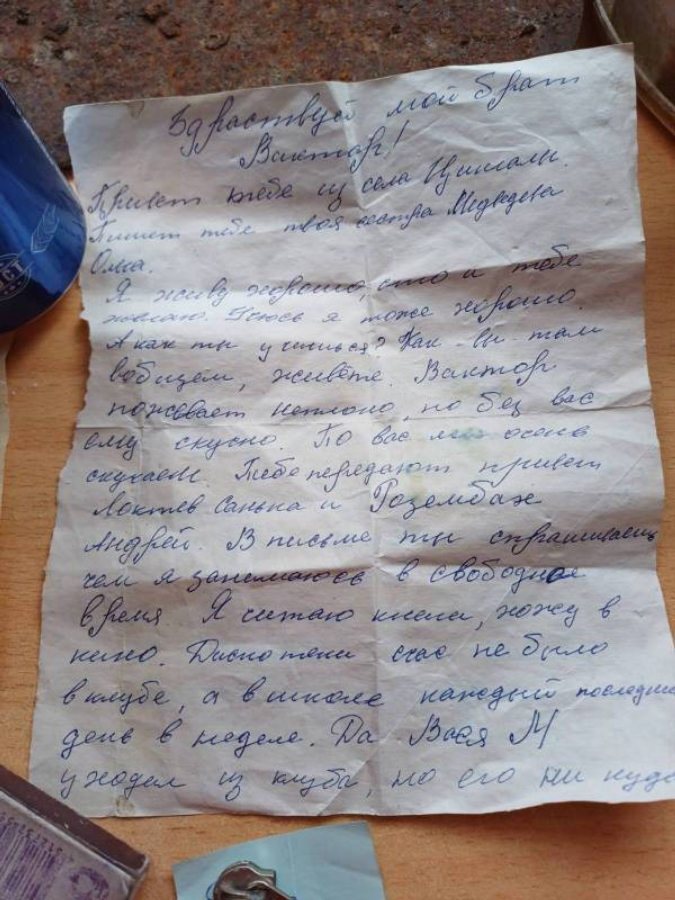 Здраствуй мой брат
Виктор!
Привет тебе из села
Пишет тебе твоя сестра Медведева
Олка.
Я живу хорошо, что и тебе
желаю. Учюсь я тоже хорошо.
А как ты учишься? Как вы там
вобщем, живёте. Виктор
поживает неплохо, но без вас
ему скусно. По вас мы очень
скучаем. Тебе передают привет
Локтев Санька и Розембах
Андрей. В письме ты спрашиваешь
чем я занимаюсь в свободное
время. Я читаю книги, хожу в
кино. Дискотеки счас не было
в клубе, а в школе каждый последний
день в неделе. Да Вася М
уходел из клуба, но его ни куда